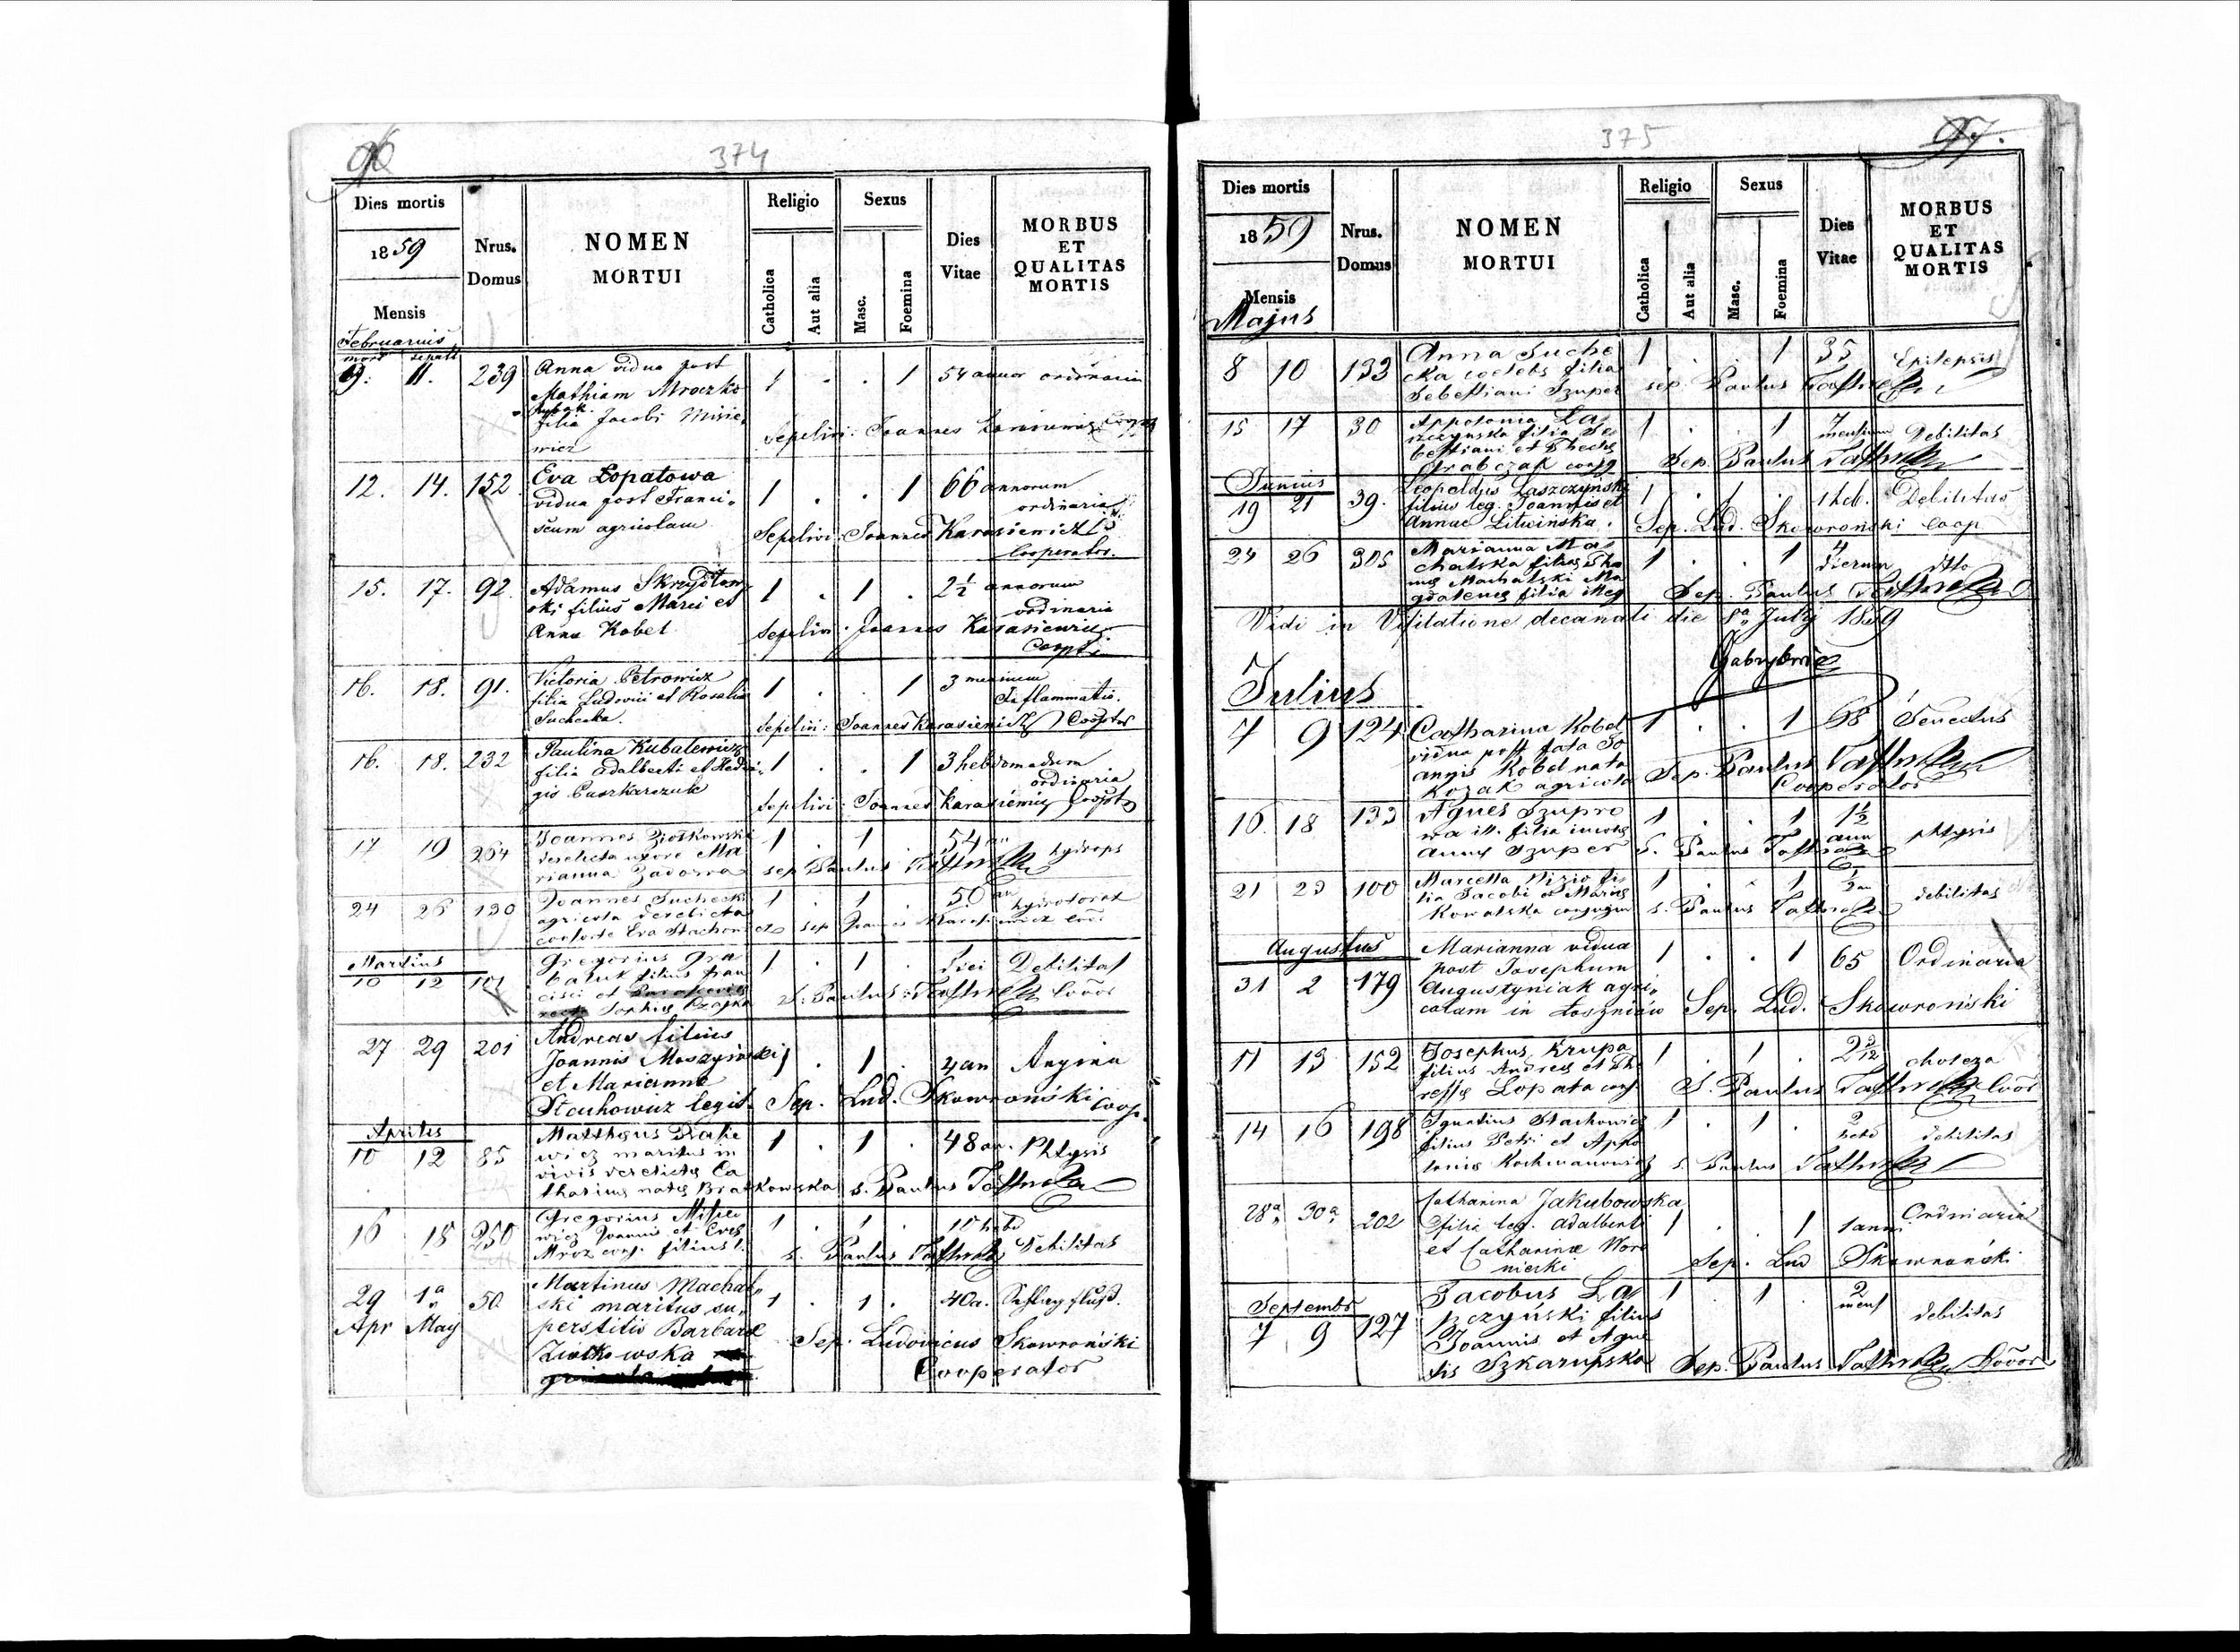 96
374
Dies mortis
1859
Mensis
Februarius
Nrus. Domus
NOMEN MORTUI
Religio
Catholica
Aut alia
Sexus
Masc.
Foemina
Dies Vitae
MORBUS ET QUALITAS MORTIS
mort sepult
9. 11. 239 Anna vidua post 1 . . 1 54 annor ordinaria
Mathiam Mroczko
filia Jacobi Misie
wicz Sepelivi: Joannes
12. 14. 152 Eva Łopatowa 1 . . 1 66 annorum
vidua post Franci- ordinaria
scum agricolam Sepelivi: Joannes Karasiewicz
Cooperator.
15. 17. 92. Adamus Skrzydłow 1 . 1 . 2½ annorum
ski filius Marci et ordinaria
Anna Kobel Sepelivi: Joannes Karasiewicz
Coopt.
16. 18. 91. Victoria Petrowicz 1 . . 1 3 mensium
filia Ludovici et Rosalia Inflammatio.
Suchecka. Sepelivi: Joannes Karasiewicz Cooptor
16. 18. 232 Paulina Kubalewicz 1 . . 1 3 hebdomadum
filia Adalberti et Hedvi- ordinaria
gis Paszkarczuk Sepelivi: Joannes Karasiewicz Coopt
17 19 264 Joannes Ziołkowski 1 . 1 . 54 an hydrops
derelicta uxore Ma
rianna Zadorra sep Paulus
24 26 130 Joannes Suchecki 1 . 1 . 50 an hydrotorax
agricola derelicta
consorte Eva Stachon sep Joannes
Martius
10 12 101 Gregorius Gra 1 . 1 . 1 diei Debilitas
baluk filius Fran
cisci et
Sophia Czajka S: Paulus Coor
27 29 201 Andreas filius
Joannis Moszyński 1 . 1 . 4 an Angina
et Marianna
Stachowicz legit. Sep. Lud. Skowroński Coop.
Aprilis
10 12 85 Matthæus 1 . 1 . 48 an. Phtysis
wicz maritus in
vivis derelictæ Ca
tharinæ natæ Bratkowska s. Paulus
16 18 250 Gregorius Misie 1 . 1 . 10 hebd Debilitas
wicz Joannis et Evæ
Mroz conj. filius l. s. Paulus
29 1a 50 Martinus Machal 1 . 1 . 40a.
Apr May ski maritus su
perstitis Barbaræ Sep. Ludovicus Skowroński
Ziołkowska Cooperator
375
97.
Dies mortis
1859
Mensis
Majus
Nrus. Domus
NOMEN MORTUI
Religio
Catholica
Aut alia
Sexus
Masc.
Foemina
Dies Vitae
MORBUS ET QUALITAS MORTIS
8 10 133 Anna Suche 1 . . 1 35 Epilepsis
cka coelebs filia
Sebestiani Szuper sep. Paulus
15 17 30 Appolonia La 1 . . 1 7 mensium Debilitas
szczynska filia Se
bestiani et Theclæ
Grabczak conjg Sep. Paulus
Junius
19 21 39. Leopoldus Laszczyński 1 . 1 . 1 heb. Debilitas
filius leg. Joannis et
Annae Litwińska. Sep. Lud. Skowroński Coop
24 26 305 Marianna Ma 1 . . 1 4 dierum dtto
chalska filia Tho
mæ Machalski Ma
gdalenæ filia illeg Sep. Paulus
Vidi in Visitatione decanali die 8a July 1859
Julius
7 9 124 Catharina Kobel 1 . . 1 68 Senectus
vidua post fata Jo
annis Kobel nata Sep. Paulus
Kozak agricola Cooperator
16. 18 133 Agnes Szupro 1 . . 1 1½ phtysis
wa ill. filia
annæ Szuper S. Paulus
21 23 100 Marcella Misio fi 1 . . 1 debilitas
lia Jacobi et Mariæ
Kowalska conjugum s. Paulus
Augustus
31 2 179 Marianna vidua 1 . . 1 65 Ordinaria
post Josephum
Augustyniak agri-
colam in Łoszniów Sep. Lud. Skowroński
11 13 152 Josephus Krupa 1 . 1 . 2 3/12 cholera
filius Andreæ et The
ressæ Lopata conj. S. Paulus Coor
14 16 198 Ignatius Stachowicz 1 . 1 . 2 hebd debilitas
filius Petri et Appo
loniæ Kochmanowicz s. Paulus
28a 30a 202 Catharina Jakubowska
filia leg. Adalberti 1 . . 1 1 anni Ordinaria
et Catharinæ Wore
niecki Sep. Lud Skowroński
Septembr
7 9 127 Jacobus La 1 . 1 . 2 mens debilitas
szczyński filius
Joannis et Agne
tis Szkarupska Sep. Paulus Coor